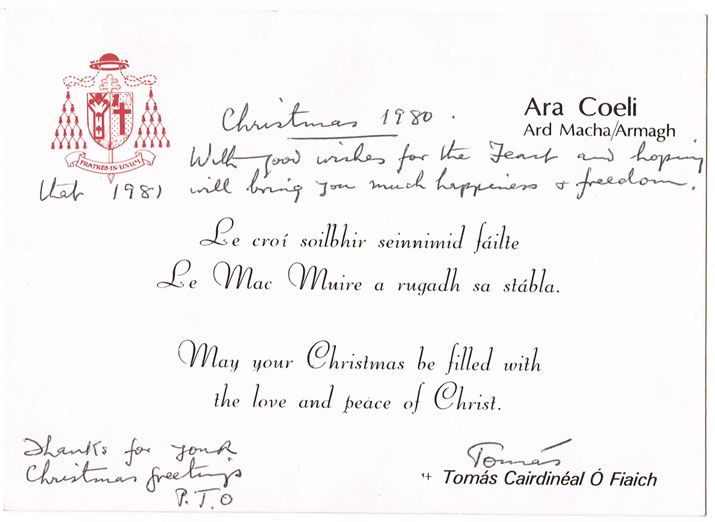 FRATRES IN UNUM
Ara Coeli
Ard Macha/Armagh
Christmas 1980.
With good wishes for the Feast and hoping
that 1981 will bring you much happiness & freedom.
Le croí soilbhir seinnimid fáilte
Le Mac Muire a rugadh sa stábla.
May your Christmas be filled with
the love and peace of Christ.
Thanks for your
Christmas greetings
P.T.O
Tomás
+ Tomás Cairdinéal Ó Fiaich